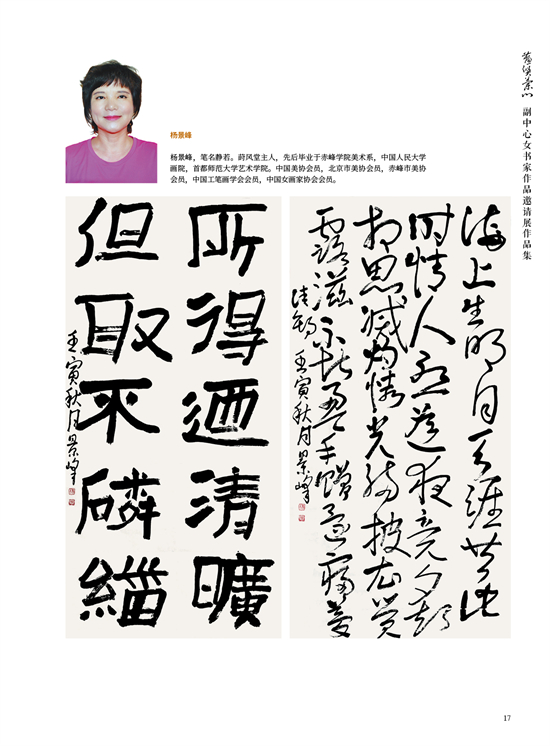 副中心女书家作品邀请展作品集
杨景峰
杨景峰，笔名静若。莳风堂主人，先后毕业于赤峰学院美术系，中国人民大学
画院，首都师范大学艺术学院。中国美协会员，北京市美协会员，赤峰市美协
会员，中国工笔画学会会员，中国女画家协会会员。
海上生明月天涯共此
时情人怨遥夜竟夕起
相思减烛怜光满披衣觉
露滋不堪盈手赠还寝梦
佳期 壬寅秋月景峰
所得迺清曠
但取不磷緇
壬寅秋月景峰
17